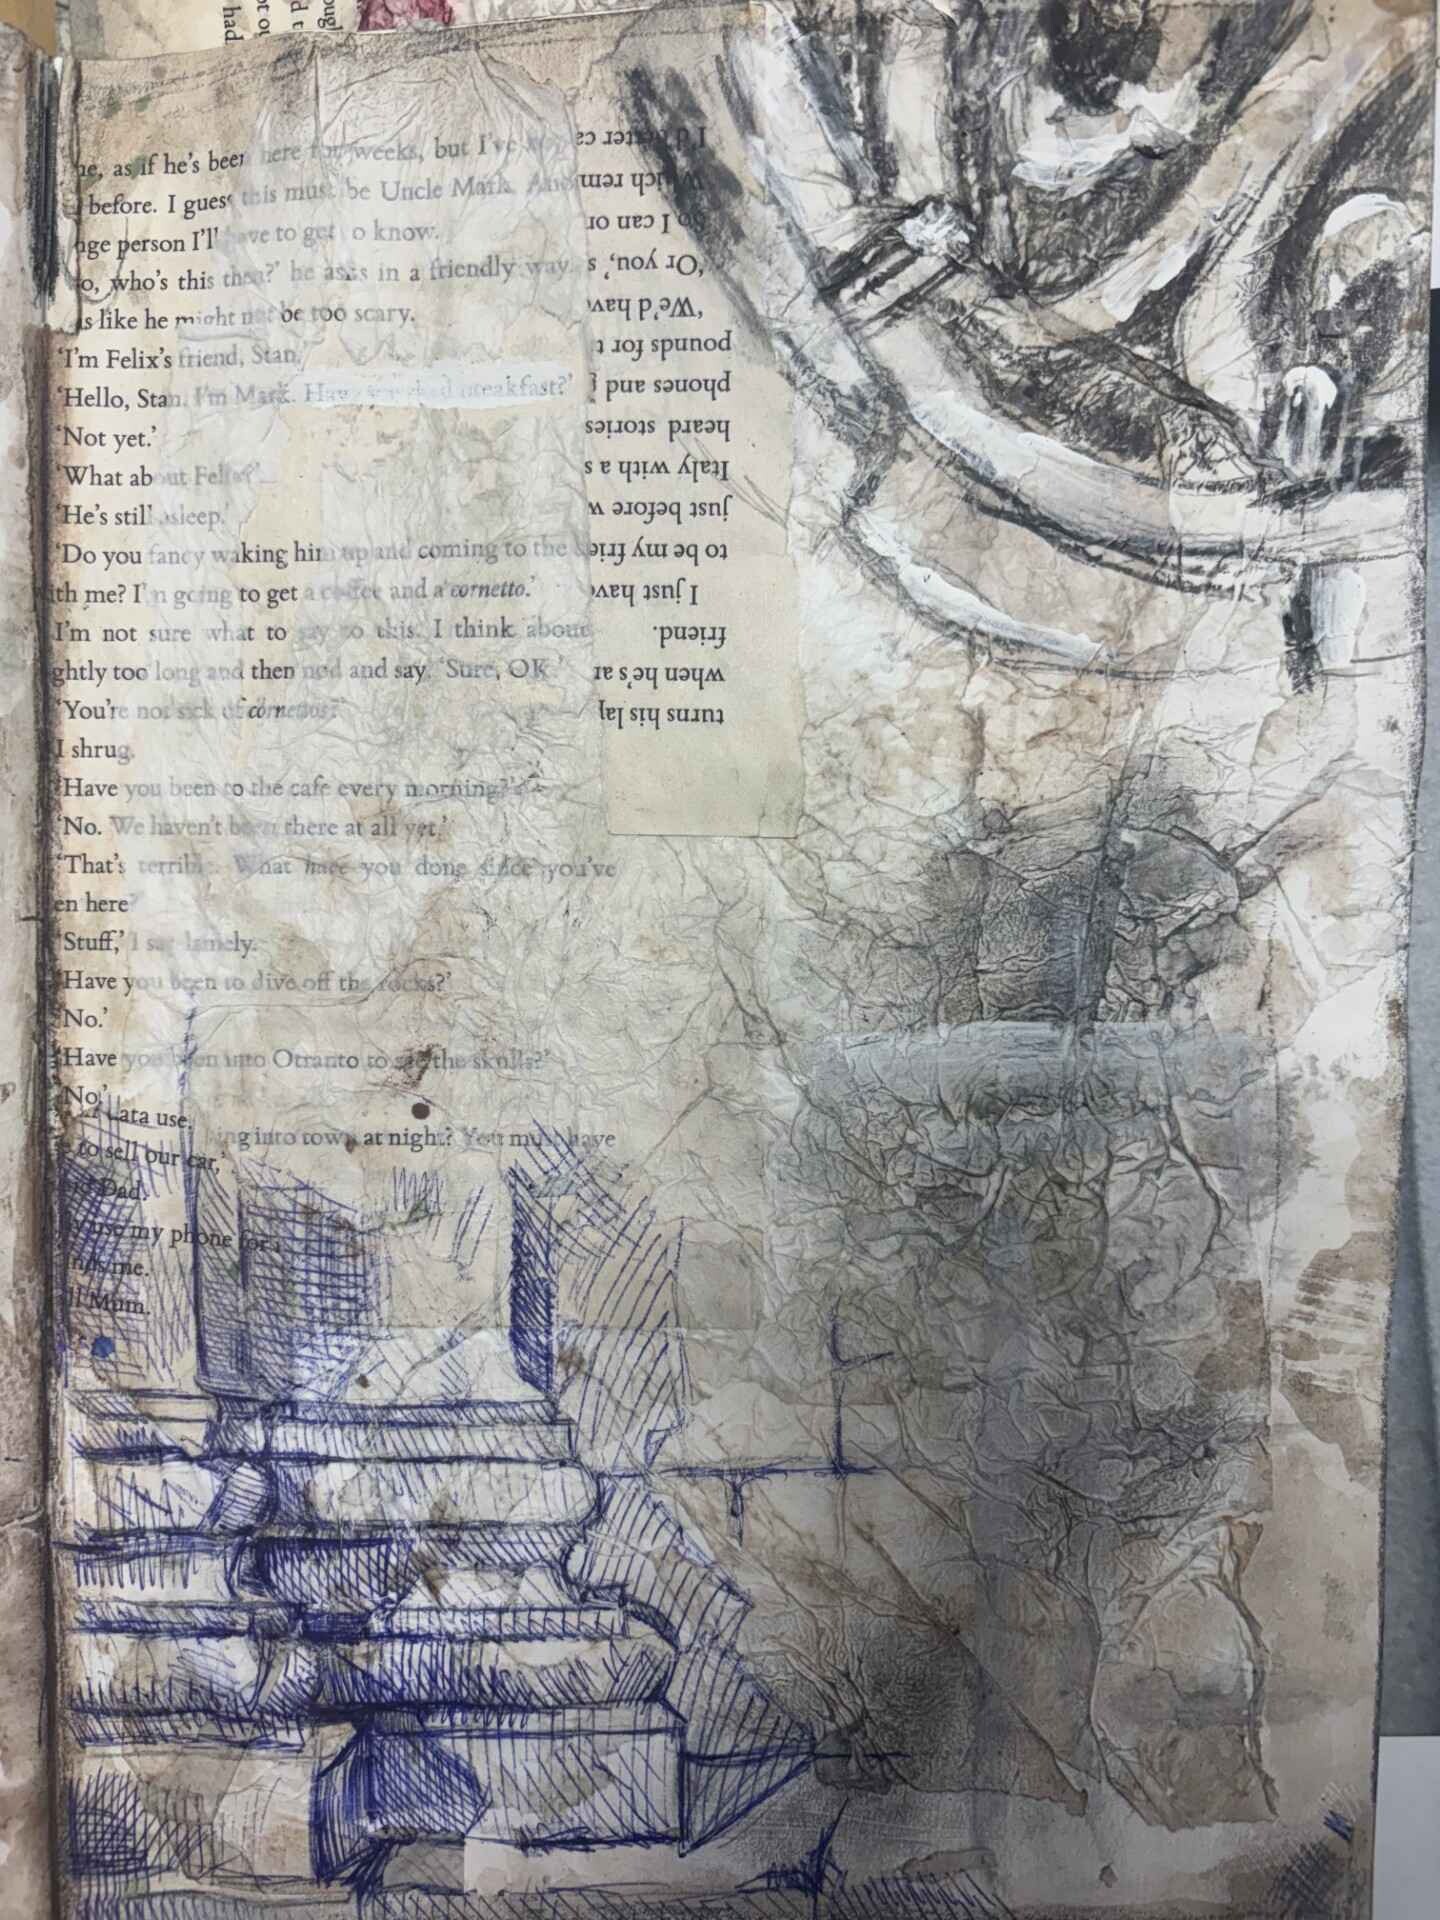 ough
d t
ot ou
had
he, as if he's been here for weeks, but I've
before. I guess this must be Uncle Mark.
nge person I'll have to get to know.
o, who's this then?' he asks in a friendly way.
ks like he might not be too scary.
'I'm Felix's friend, Stan.'
'Hello, Stan. I'm Mark. Have you had breakfast?'
'Not yet.'
'What about Felix?'
'He's still asleep.'
'Do you fancy waking him up and coming to the
ith me? I'm going to get a coffee and a cornetto.'
I'm not sure what to say to this. I think about
ghtly too long and then nod and say, 'Sure, OK.'
'You're not sick of cornettos?'
I shrug.
'Have you been to the cafe every morning?'
'No. We haven't been there at all yet.'
'That's terrible. What have you done since you've
en here?'
'Stuff,' I say lamely.
'Have you been to dive off the rocks?'
'No.'
'Have you been into Otranto to see the skulls?'
'No.'
ing into town at night? You must have
ata use.
to sell our car,'
id Dad.
y use my phone for
nds me.
ll Mum.
turns his lap
when he's ar
friend.
I just have
to be my frie
just before w
Italy with a s
heard stories
phones and
pounds for t
'We'd have
'Or you,' s
So I can or
Which rem
I'd better ca